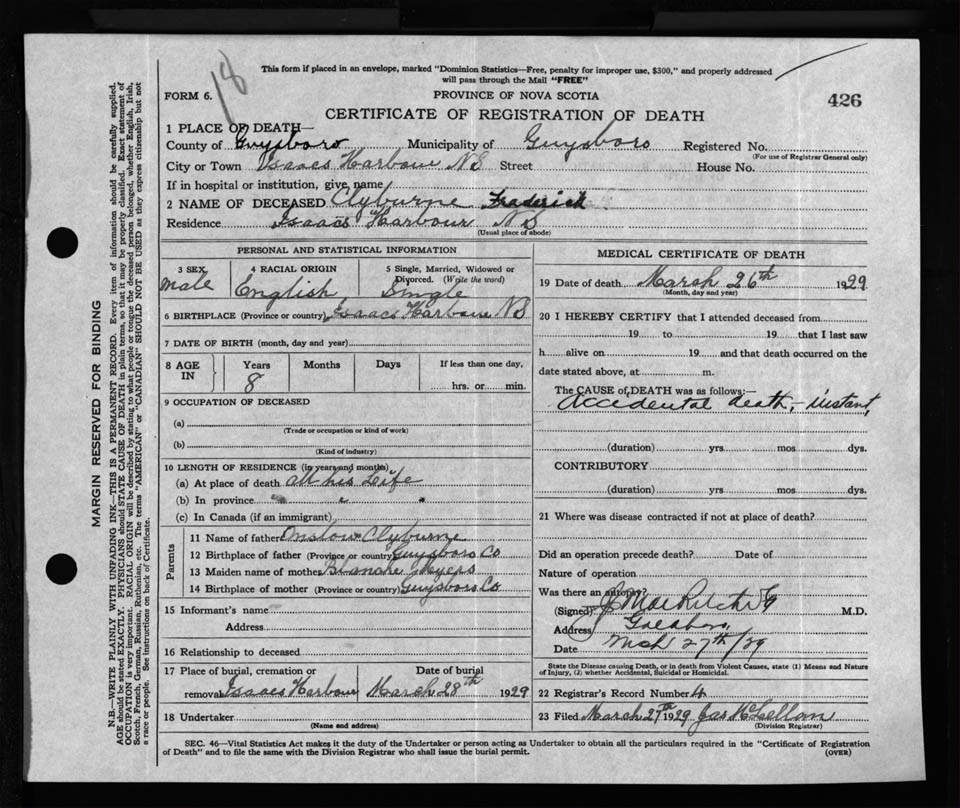 18
This form if placed in an envelope, marked "Dominion Statistics—Free, penalty for improper use, $300," and properly addressed
will pass through the Mail "FREE"
FORM 6.
PROVINCE OF NOVA SCOTIA
426
CERTIFICATE OF REGISTRATION OF DEATH
1 PLACE OF DEATH—
County of Guysboro Municipality of Guysboro Registered No.
(For use of Registrar General only)
City or Town Isaacs Harbour NS Street House No.
If in hospital or institution, give name
2 NAME OF DECEASED Clyburne Fraderick
Residence Isaacs Harbour NS
(Usual place of abode)
PERSONAL AND STATISTICAL INFORMATION
3 SEX male
4 RACIAL ORIGIN English
5 Single, Married, Widowed or Divorced. (Write the word) Single
6 BIRTHPLACE (Province or country) Isaacs Harbour NS
7 DATE OF BIRTH (month, day and year)
8 AGE IN Years 8 Months Days If less than one day, hrs. or min.
9 OCCUPATION OF DECEASED
(a)
(Trade or occupation or kind of work)
(b)
(Kind of industry)
10 LENGTH OF RESIDENCE (in years and months)
(a) At place of death all his Life
(b) In province " " "
(c) In Canada (if an immigrant)
Parents
11 Name of father Onslow Clyburne
12 Birthplace of father (Province or country) Guysboro Co
13 Maiden name of mother Blanche Myers
14 Birthplace of mother (Province or country) Guysboro Co
15 Informant's name
Address
16 Relationship to deceased
17 Place of burial, cremation or removal Isaacs Harbour Date of burial March 28th 1929
18 Undertaker
(Name and address)
MEDICAL CERTIFICATE OF DEATH
19 Date of death March 26th 1929
(Month, day and year)
20 I HEREBY CERTIFY that I attended deceased from
19 to 19 that I last saw
h alive on 19 and that death occurred on the
date stated above, at m.
The CAUSE of DEATH was as follows:—
Accidental death,– instant,
(duration) yrs mos dys.
CONTRIBUTORY
(duration) yrs mos dys.
21 Where was disease contracted if not at place of death?
Did an operation precede death? Date of
Nature of operation
Was there an autopsy?
(Signed) M.D.
Address Goldboro,
Date Mch 27th/29
State the Disease causing Death, or in death from Violent Causes, state (1) Means and Nature
of Injury, (2) whether Accidental, Suicidal or Homicidal.
22 Registrar's Record Number 4
23 Filed March 27th 1929 Jas McLellan
(Division Registrar)
SEC. 46—Vital Statistics Act makes it the duty of the Undertaker or person acting as Undertaker to obtain all the particulars required in the "Certificate of Registration
of Death" and to file the same with the Division Registrar who shall issue the burial permit.
(OVER)
MARGIN RESERVED FOR BINDING
N.B.—WRITE PLAINLY WITH UNFADING INK—THIS IS A PERMANENT RECORD. Every item of information should be carefully supplied.
AGE should be stated EXACTLY. PHYSICIANS should STATE CAUSE OF DEATH in plain terms, so that it may be properly classified. Exact statement of
OCCUPATION is very important. RACIAL ORIGIN will be described by stating to what people or tongue the deceased person belonged, whether English, Irish,
Scotch, French, German, Russian, Ruthenian, etc. The terms "AMERICAN" or "CANADIAN" SHOULD NOT BE USED as they express citizenship but not
a race or people. See instructions on back of Certificate.